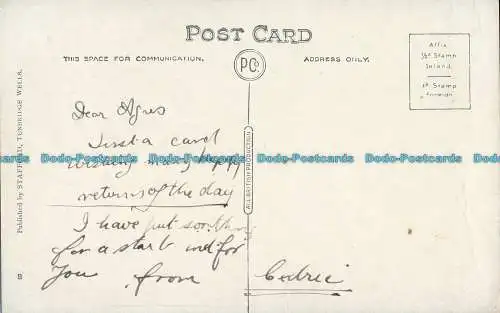 POST CARD
THIS SPACE FOR COMMUNICATION.
PC.
ADDRESS ONLY.
Affix
½d Stamp
Inland.
1d Stamp
Foreign
Dear Agnes
Just a card
wishing many happy
returns of the day
I have put
for a start for
You from
Cedric
ALL BRITISH PRODUCTION
Published by STAFFIELD, TUNBRIDGE WELLS.
Dodo-Postcards Dodo-Postcards Dodo-Postcards Dodo-Postcards Dodo-Postcards